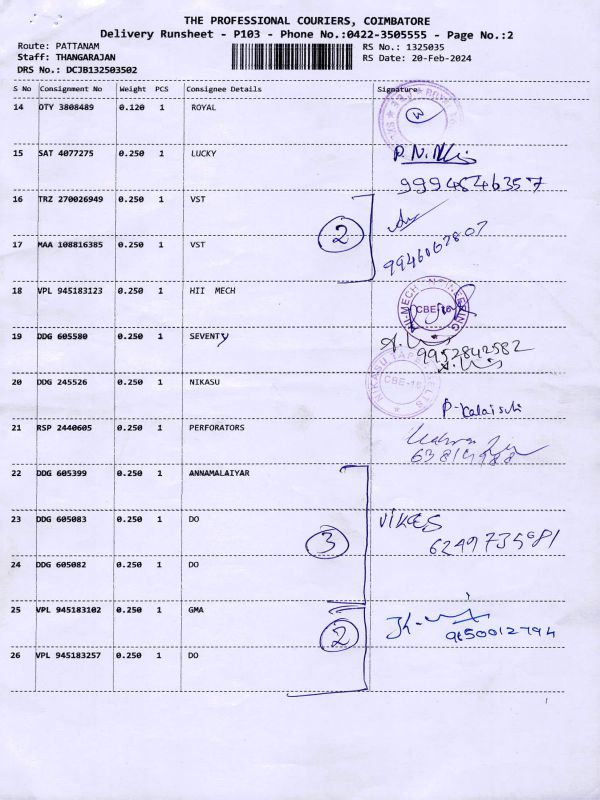 THE PROFESSIONAL COURIERS, COIMBATORE
Delivery Runsheet - P103 - Phone No.:0422-3505555 - Page No.:2
Route: PATTANAM RS No.: 1325035
Staff: THANGARAJAN RS Date: 20-Feb-2024
DRS No.: DCJB132503502
S No Consignment No Weight PCS Consignee Details Signature
14 OTY 3808489 0.120 1 ROYAL
15 SAT 4077275 0.250 1 LUCKY
9994546357
16 TRZ 270026949 0.250 1 VST
2
17 MAA 108816385 0.250 1 VST
18 VPL 945183123 0.250 1 HII MECH
CBE-
19 DDG 605580 0.250 1 SEVENTY
9952842582
20 DDG 245526 0.250 1 NIKASU
NIKASU
CBE-
21 RSP 2440605 0.250 1 PERFORATORS
22 DDG 605399 0.250 1 ANNAMALAIYAR
23 DDG 605083 0.250 1 DO
3
24 DDG 605082 0.250 1 DO
25 VPL 945183102 0.250 1 GMA
2
26 VPL 945183257 0.250 1 DO